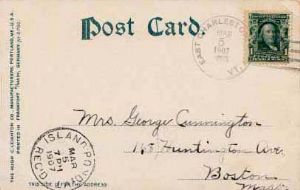 Post Card.
EAST CHARLESTON
MAR
5
1907
VT.
THE HUGH C. LEIGHTON CO., MANUFACTURERS, PORTLAND, ME., U.S.A.
PRINTED IN FRANKFORT
GERMANY
Mrs. George Cunnington
148 Huntington Ave.
Boston
Mass.
ISLAND POND
MAR
5
7 PM
1907
REC'D.
THIS SIDE IS FOR THE ADDRESS